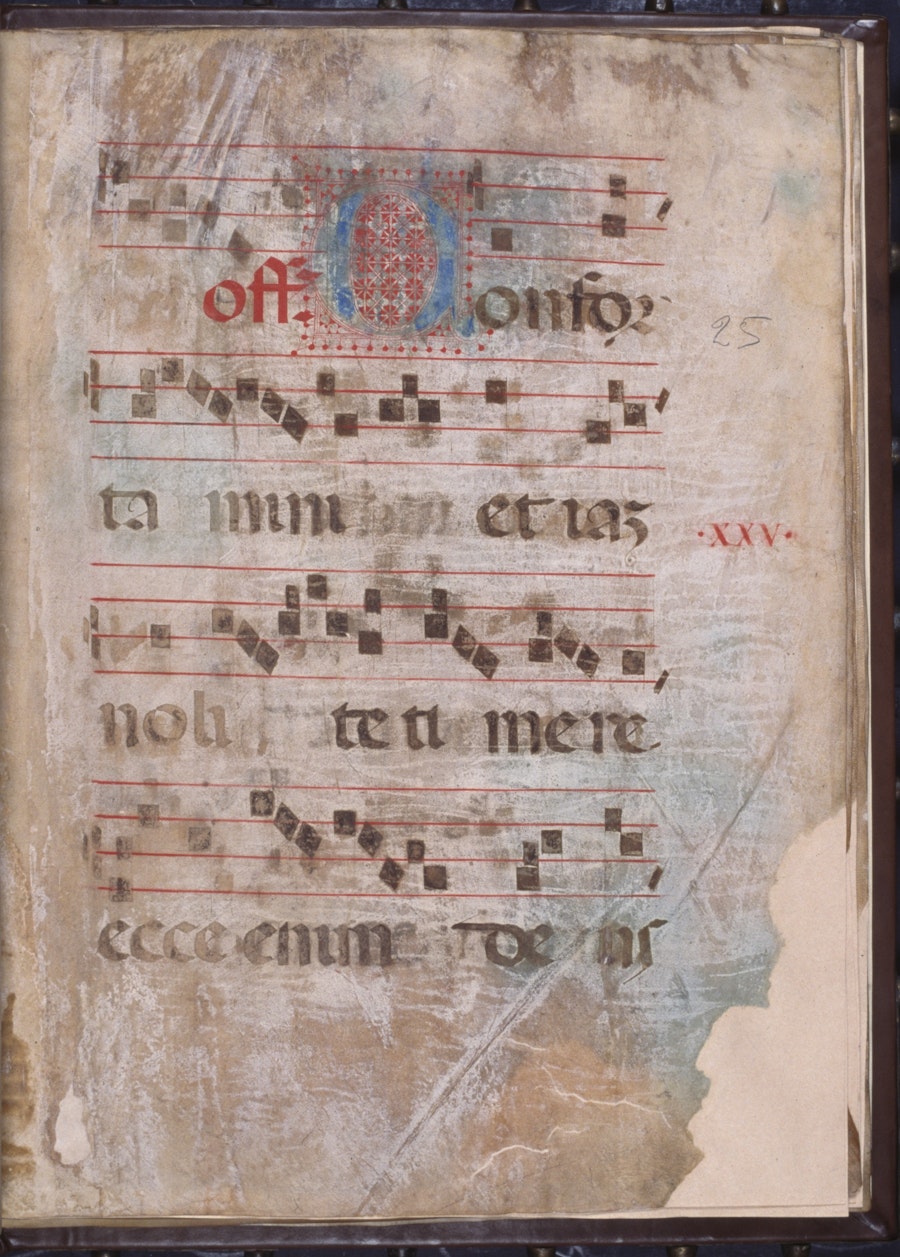 off. Confor
25
ta mini et iaʒ
·XXV·
noli te ti mere
ecce enim de us